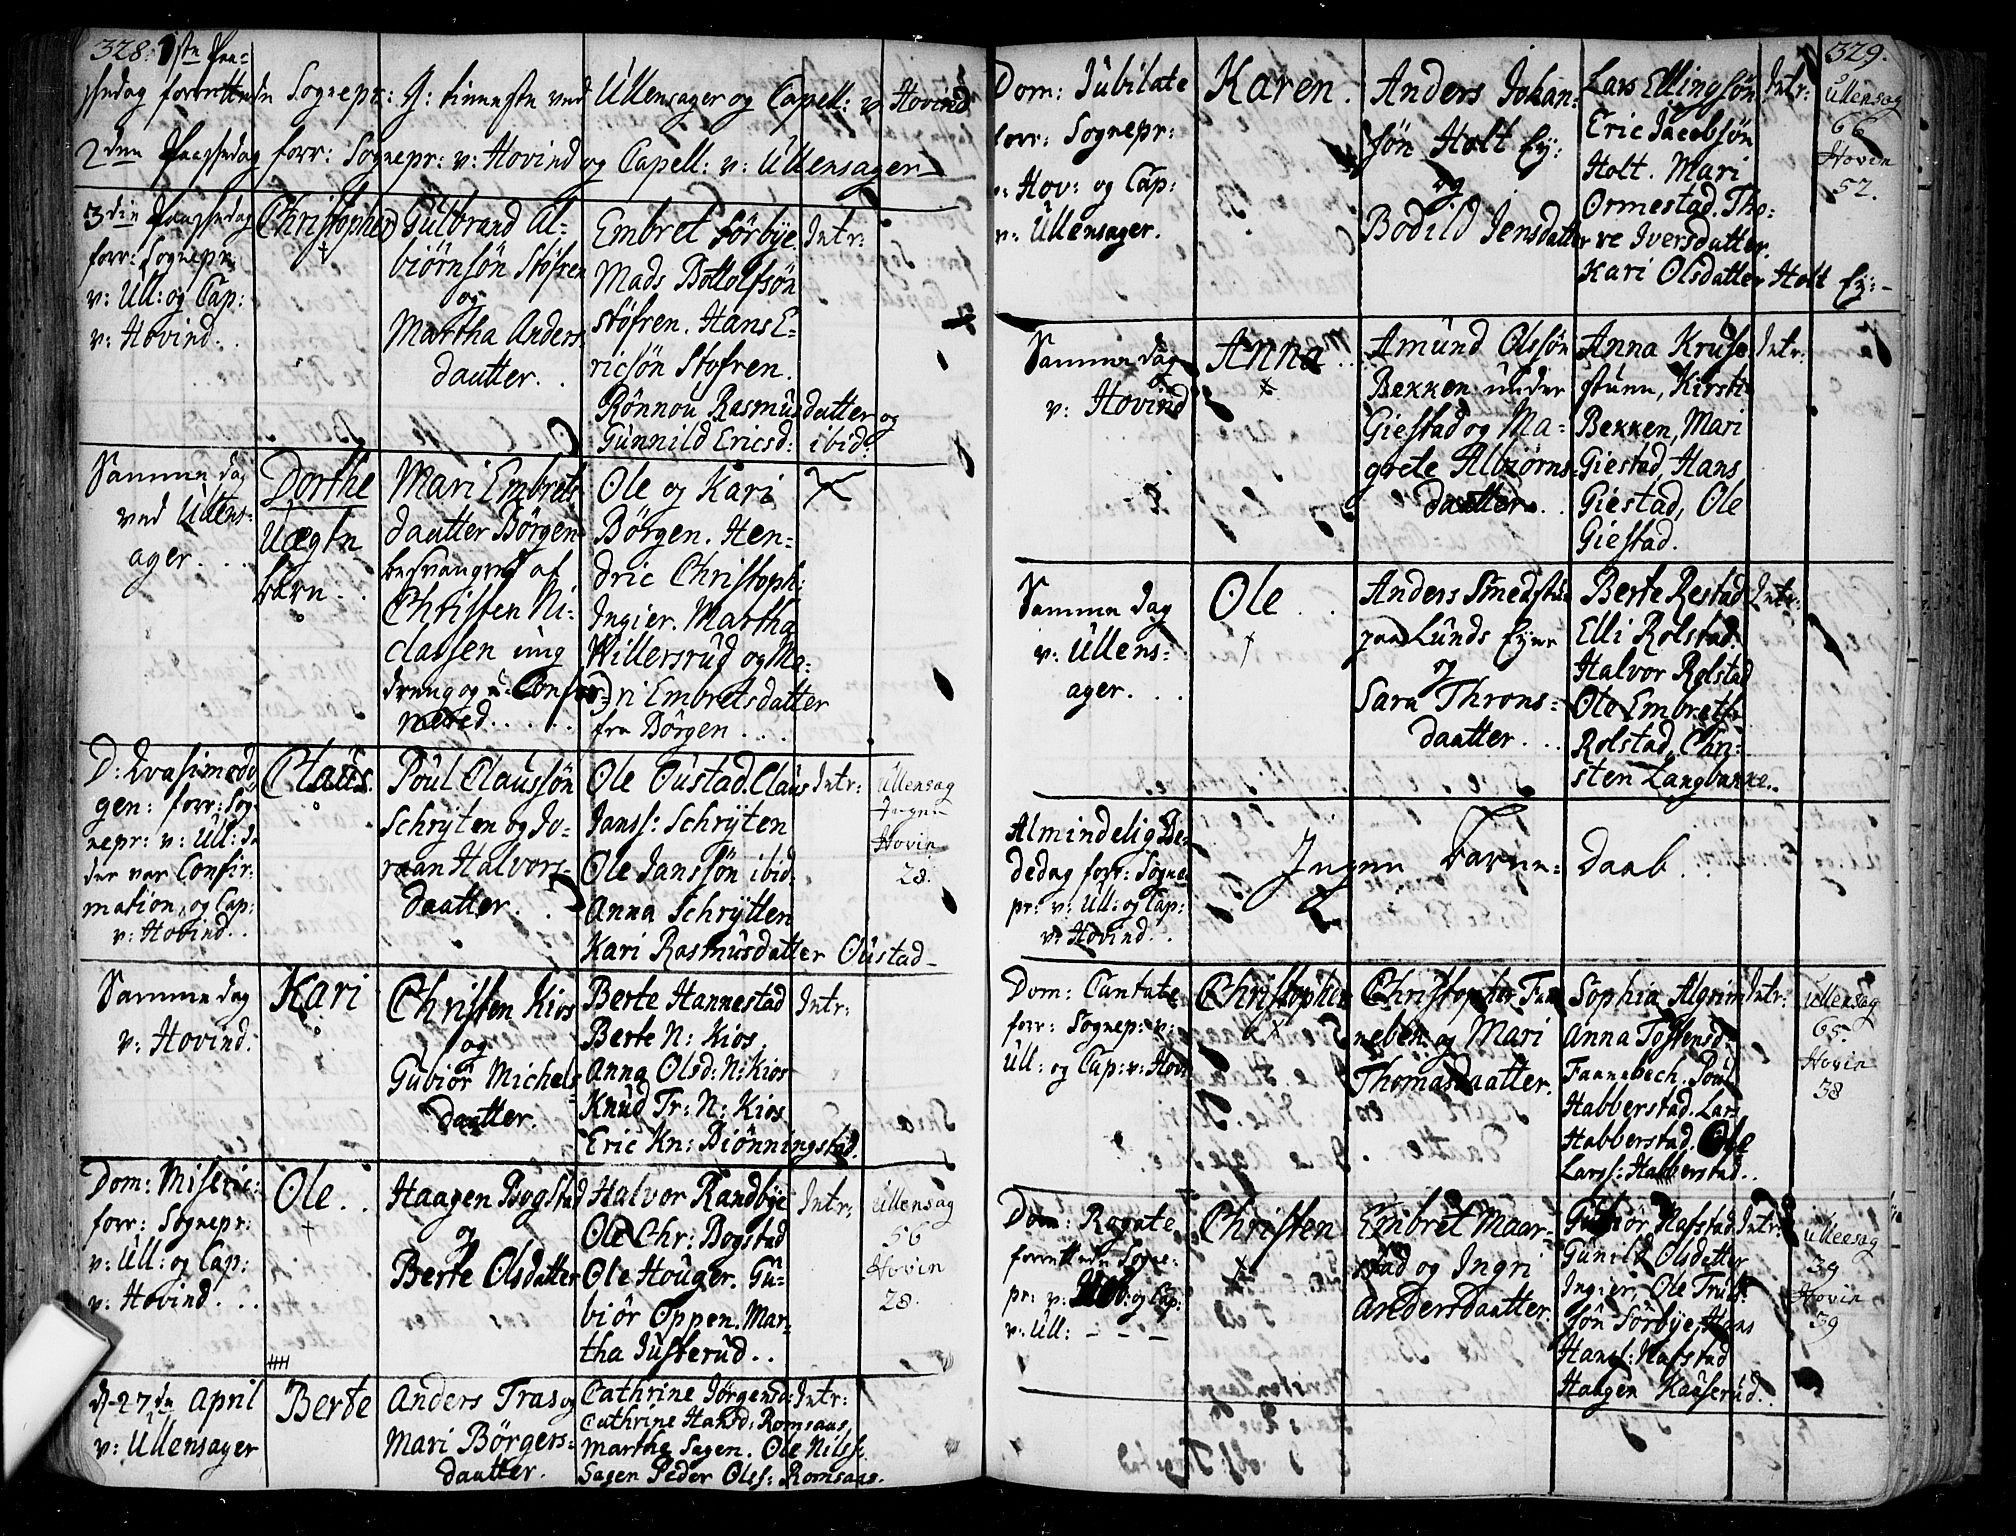 328. 1ste Paa-
skedag forrettede Sognepr: H: tienneste ved Ullensager og Capell: v: Hovind
2den Paaskedag forr: Sognepr: v: Hovind og Capell: v: Ullensager
3die Paaskedag
forr: Sognepr:
v: Ull: og Cap:
v: Hovind.
Christopher
Gulbrand Al-
biørnsøn Stofren
og
Martha Anders
daatter.
Embret Sørbye
Mads Bottolfsøn
Stofren. Hans E-
ricsøn Stofren.
Rønnou Rasmusdatter og
Gunnild Ericsd: ibid:
Intr:
Samme dag
ved Ullens-
ager.
Dorthe
Uægte
barn.
Mari Embrets
daatter Børgen
besvangret af
Christen Ni-
classen ung
dreng og u-Confir-
mered.
Ole og Kari
Børgen. Hen-
dric Christoph:
Ingier. Martha
Willersrud og Ma-
ri Embretsdatter
fra Børgen
D: Qvasimodo
gen: forr: Sog-
nepr: v: Ull: da
der var Confir-
mation, og Cap:
v: Hovind.
Claus.
Poul Claussøn
Schrÿten og Jo-
raan Halvors-
daatter.
Ole Oustad. Claus
Janss: Schrÿten
Ole Janssøn ibid:
Anna Schrÿtten
Kari Rasmusdatter Oustad
Intr:
Ullensag
Ingen
Hovin
28.
Samme dag
v: Hovind.
Kari
Christen Kios
og
Gubiør Michels
daatter.
Berte Hannestad
Berte N: Kios.
Anna Olsd: N: Kios
Knud Tr: N: Kios
Eric Kn: Biønningstad.
Intr:
Dom: Miseric:
forr: Sognepr:
v: Ull: og Cap:
v: Hovind.
Ole.
Haagen Bogstad
og
Berte Olsdatter
Halvor Randbye
Ole Chr: Bogstad
Ole Houger. Gu-
biør Oppen. Mar-
tha Justerud.
Intr:
Ullensag
56
Hovin
28.
d. 27de April
v: Ullensager
Berte
Anders Tras og
Mari Børgers-
daatter.
Cathrine Jørgensd:
Cathrine Hansd: Romsaas
Marthe Sagen. Ole Nilss:
Sagen Peder Olss: Romsaas.
Intr:
329.
Dom: Jubilate
forr: Sognepr:
v: Hov: og Cap:
v: Ullensager.
Karen.
Anders Johan-
søn Holt Ey:
og
Bodild Jensdatter
Lars Ellingsøn
Eric Jacobsøn
Holt. Mari
Ormestad. Tho-
re Iversdatter.
Kari Olsdatter Holt Ey:
Intr:
Ullensag
66
Hovin
52.
Samme dag
v: Hovind
Anna
Amund Olssøn
Bekken under
Giestad og Ma-
grete Albiørns-
daatter.
Anna Kruse-
stuen, Kirsti
Bekken, Mari
Giestad, Hans
Giestad, Ole
Giestad.
Intr:
Samme dag
v: Ullens-
ager.
Ole
Anders Smedstue
paa Lunds Eyer
og
Sara Throns-
daatter.
Berte Restad
Elli Rolstad.
Halvor Rolstad
Ole Embretss:
Rolstad, Chri-
sten Langbakke.
Intr:
Almindelig Be-
dedag forr: Sogne-
pr: v: Ull: og Cap:
v: Hovind.
Ingen Barne-Daab
Dom: Cantate
forr: Sognep: v:
Ull: og Cap: v: Hov:
Christopher
Christopher Fan-
neben og Mari
Thomasdaatter.
Sophia Algrim
Anna Tostensd:
Fannebech. Poul
Habberstad. Lars
Habberstad. Ole
Larss: Habberstad.
Intr:
Ullensag
65
Hovin
38
Dom: Rogate
forrettede Sogne-
pr: v: Hov: og Cap:
v: Ull:
Christen
Embret Maar-
stad og Ingri
Andersdaatter.
Gubiør Nafstad
Gunild Olsdatter
Ingier, Ole Truls-
søn Sørbye, Hans
Hanss: Nafstad
Haagen Kauserud.
Intr:
Ullensag
39
Hovin
39